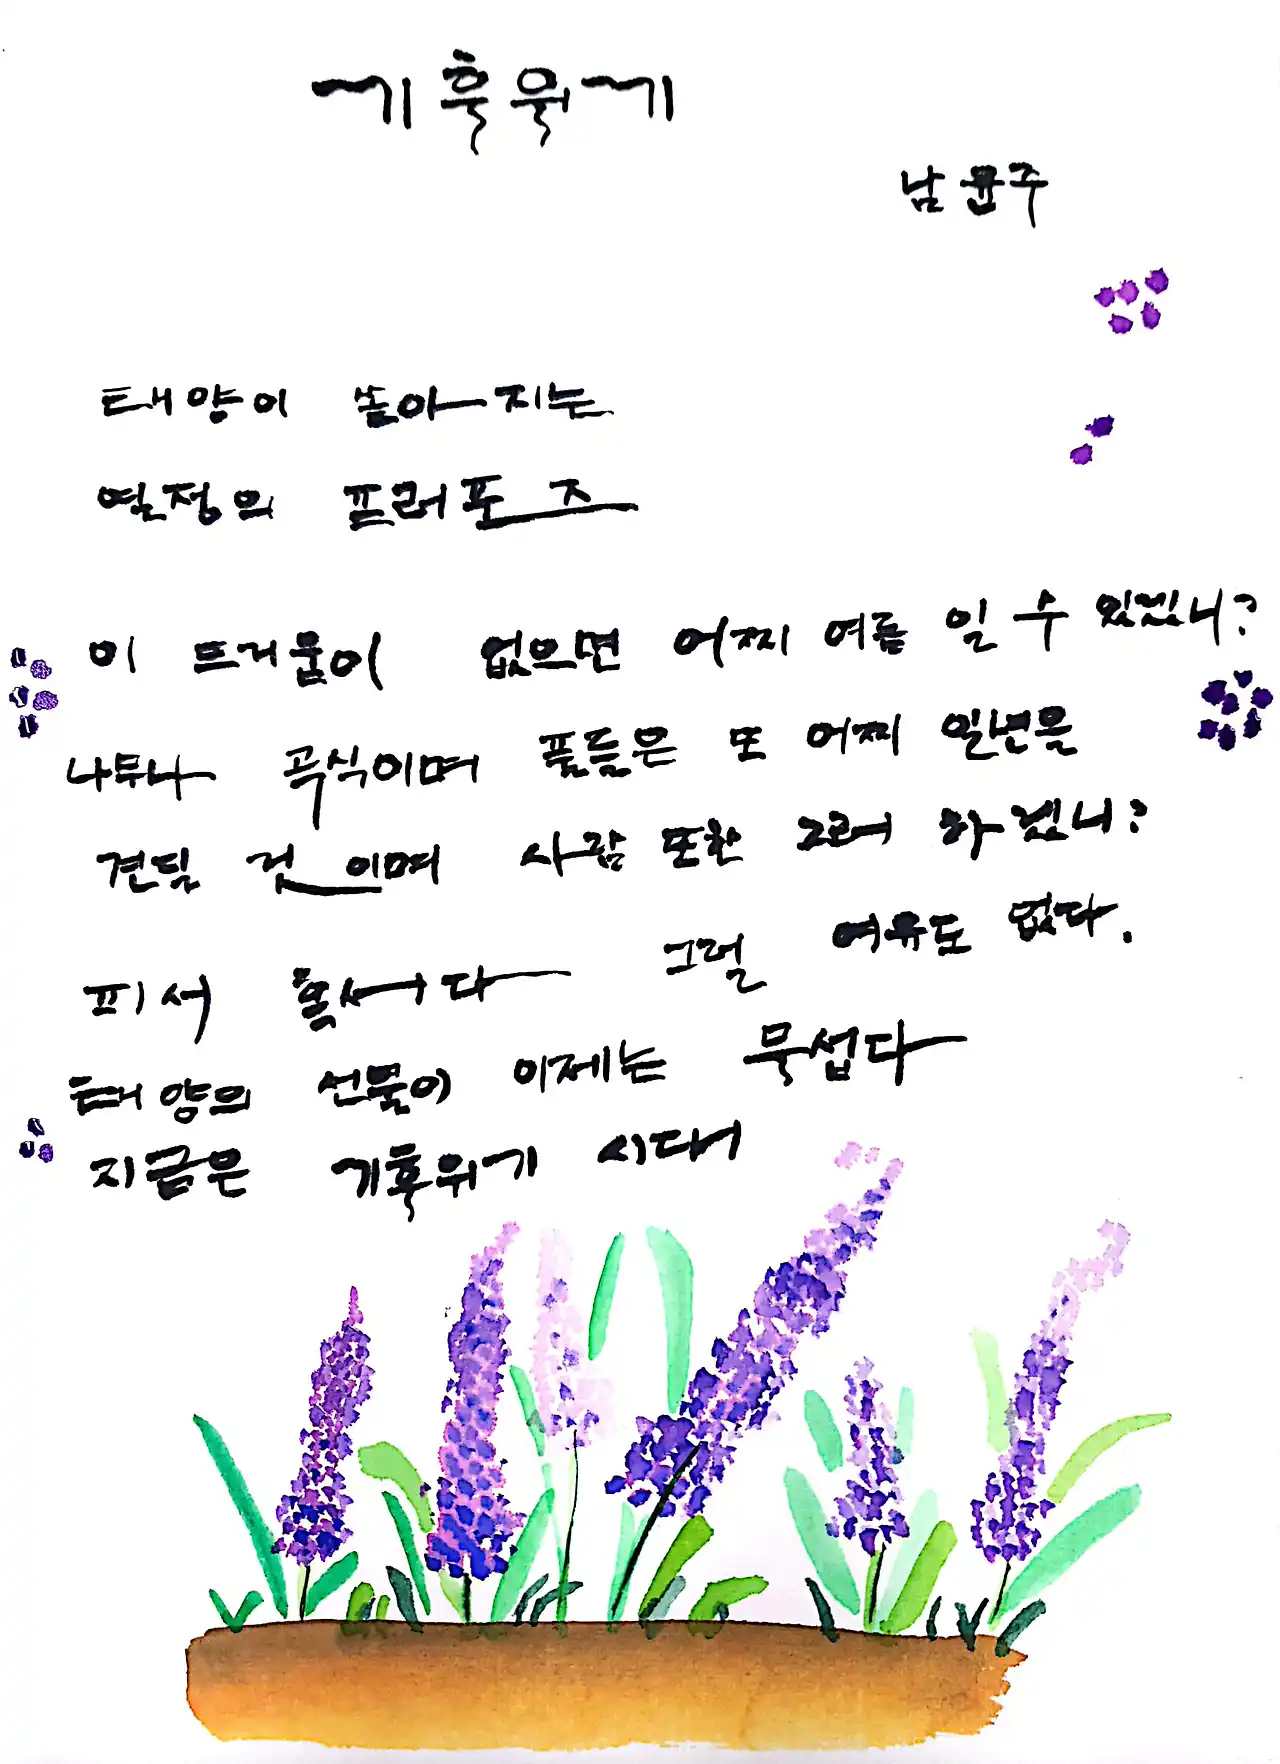 기후위기
남윤주
태양이 쏟아지는
열정의 프러포즈
이 뜨거움이 없으면 어찌 여름 일 수 있겠니?
나무나 곡식이며 풀들은 또 어찌 일년을
견딜 것이며 사람 또한 그러 하겠니?
피서 혹서다 그럴 여유도 없다.
태양의 선물이 이제는 무섭다
지금은 기후위기 시대